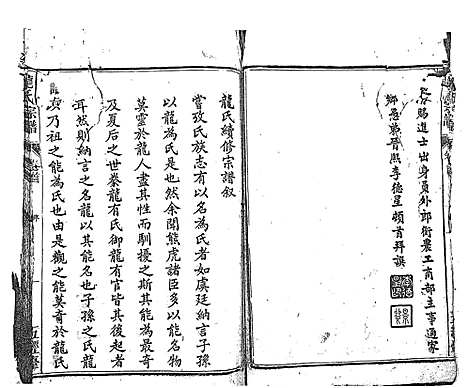 賜進士出身員外郎銜農工商部主事通家
鄉愚弟晉熙李德星頓首拜譔
龍氏續修宗譜叙
嘗攷氏族志有以名為氏者如虞廷納言子孫
以龍為氏是也然余聞熊虎諸臣多以能名物
莫靈於龍人盡其性而馴擾之斯其能為最奇
及夏后之世豢龍有氏御龍有官皆其後起者
耳然則納言之名龍以其能名也子孫之氏龍
乃祖之能為氏也由是觀之能莫奇於龍氏
龍氏宗譜